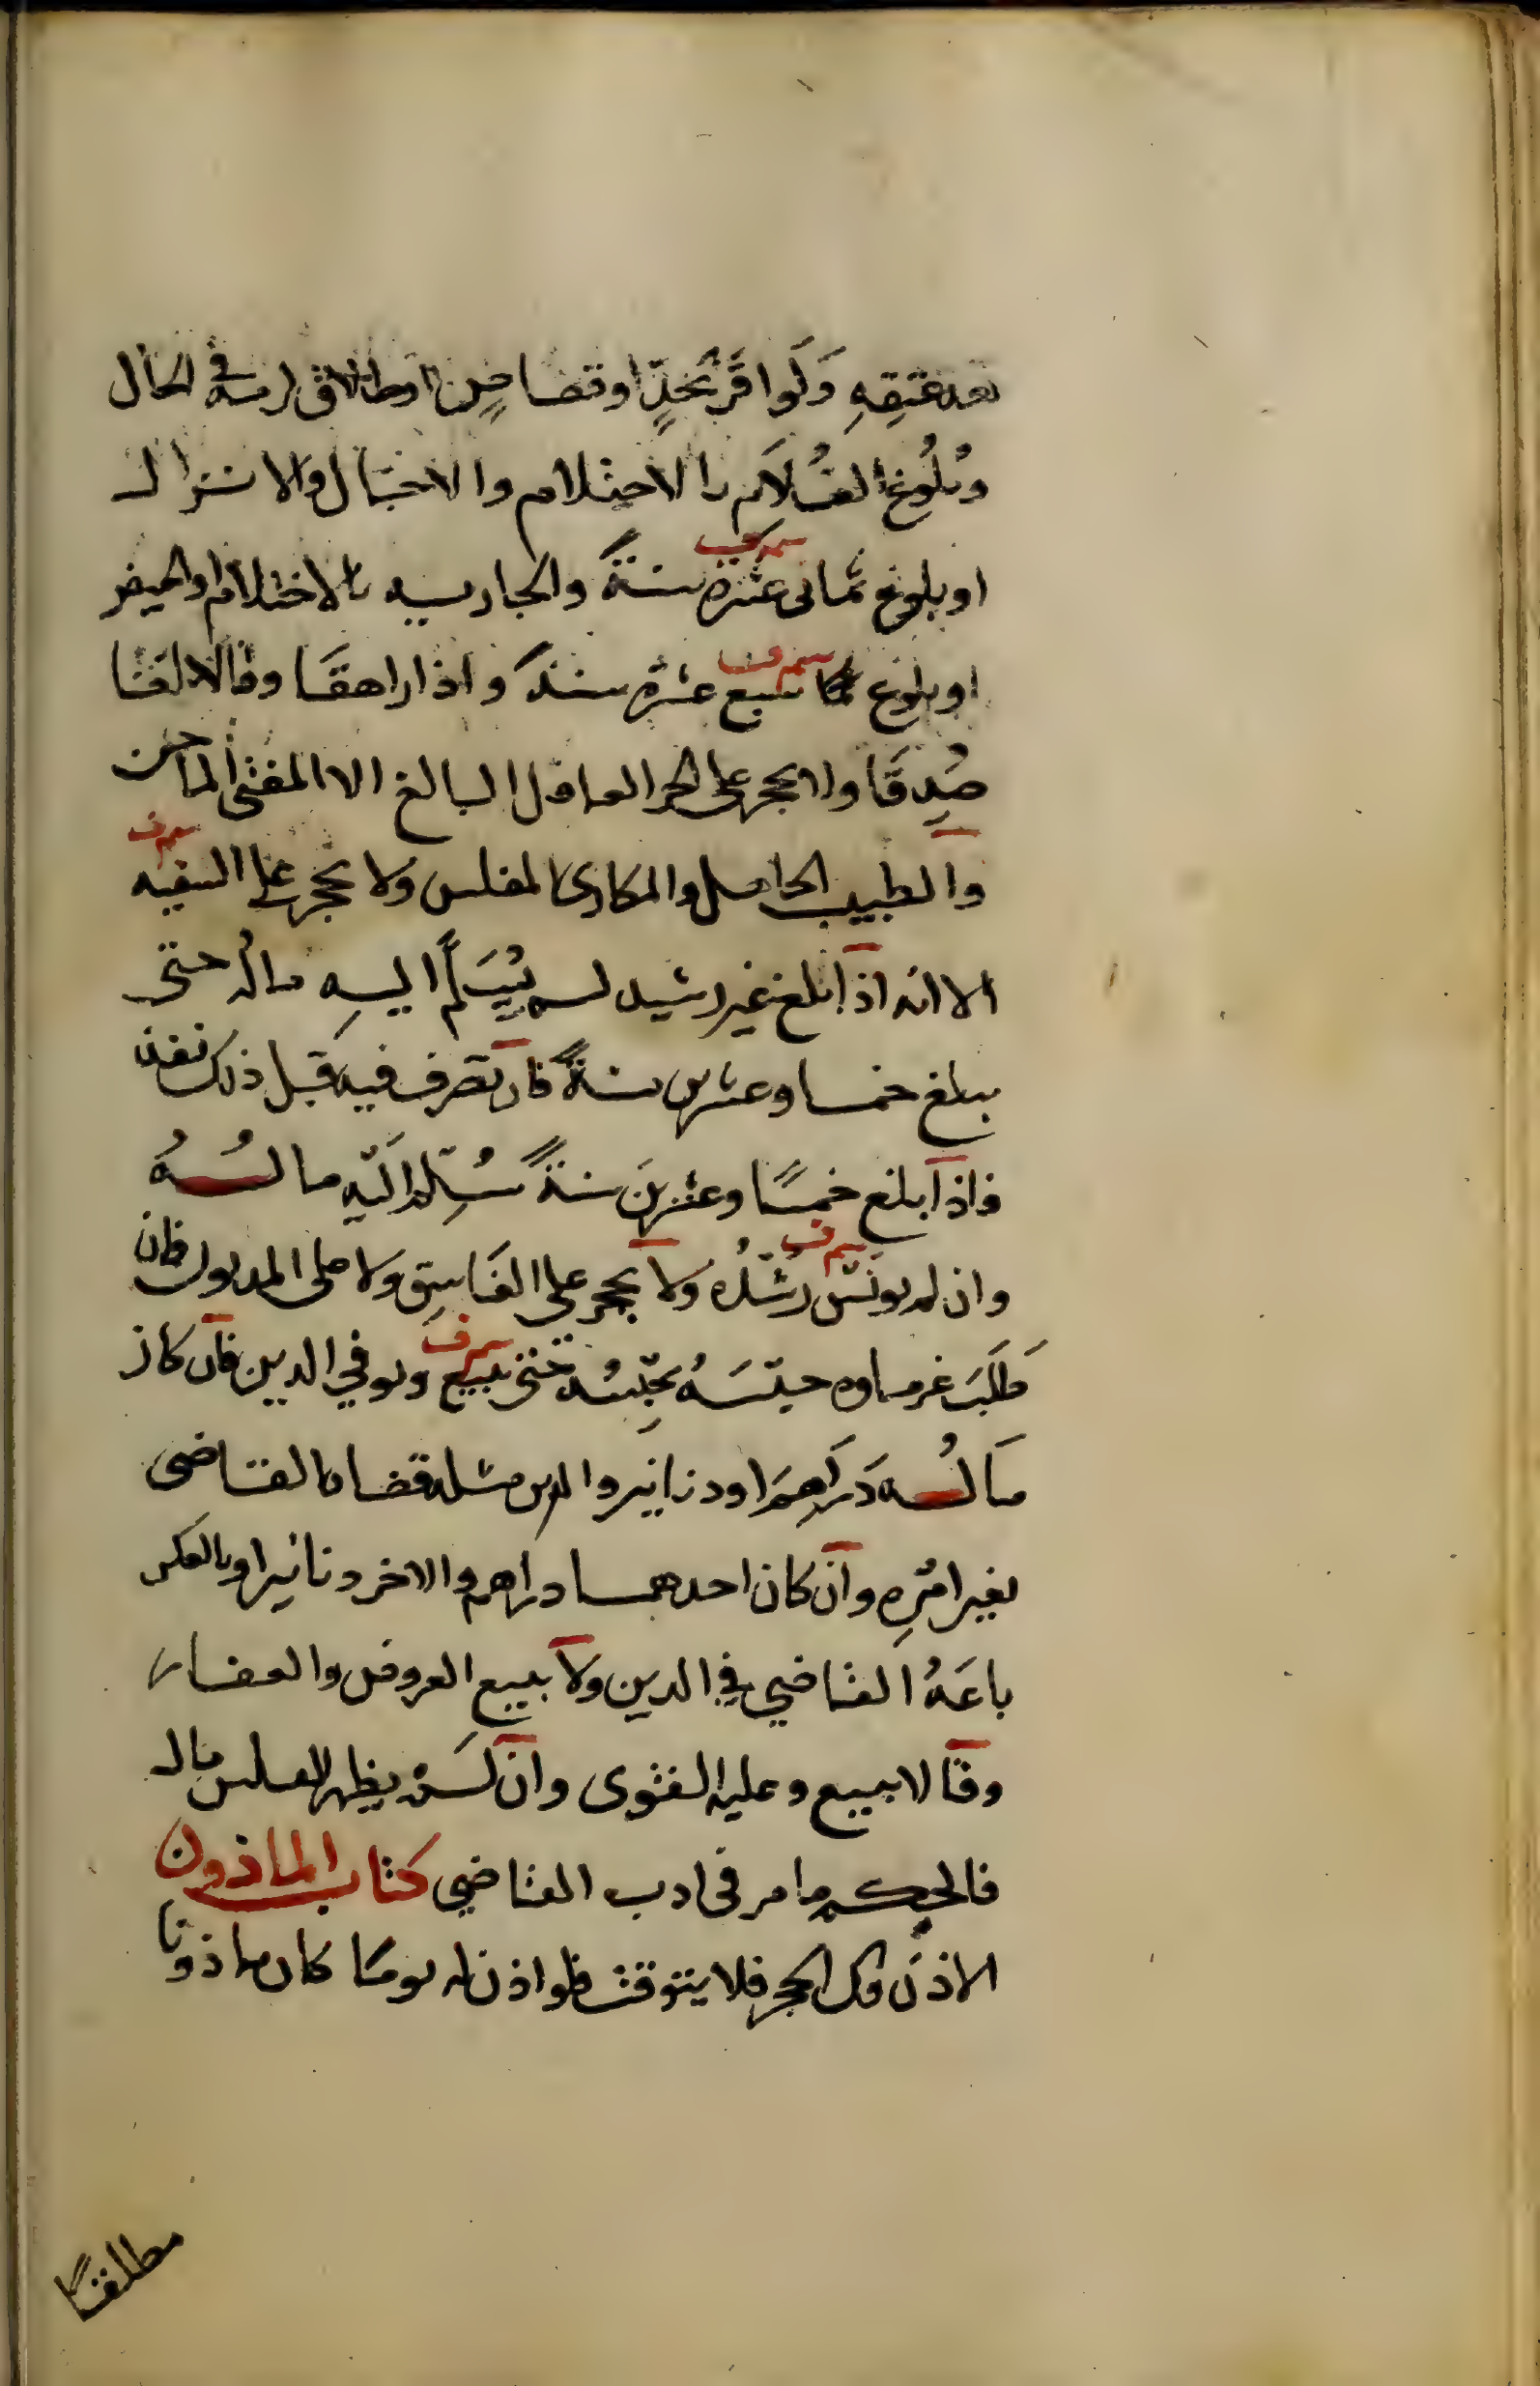 بعد عتقه وَلَو اقرَّ بحدٍّ او قصاصٍ او طلاق لزمه في الحال
وبُلُوغ الغُلَام بالاحتلام والاحبال والانزال
سم ف
او بلوغ ثمانى عشرة سنةً والجارية بالاحتلام او الحيض
سم ف
او بلوغ سبع عشرة سنة واذا راهقا وقالا بلغنا
صُدِقَا ولا يحجر على الحر العاقل البالغ الا المفتى الماجن
سم ف
والطبيب الجاهل والمكارى المفلس ولا يحجر على السفيه
الا انه اذا بلغ غير رشيد لم يُسَلَّم اليهِ ماله حتى
يبلغ خمسا وعشرين سنةً فان تصرف فيه قبل ذلك نفذ
فاذا بلغ خمسًا وعشرينَ سنةً سُلِّم اليهِ مالُهُ
سم ف
وان لم يونس رُشْدُه ولا يحجر على الفَاسِق ولا على المديون فان
سم ف
طَلَبَ غرماوه حبسَهُ حبسه حتى يبيع ويوفي الدين فان كان
مالُه دَرَاهِمَ او دنانير والدين مثله قضاه القاضى
بغير امرِه وان كان احدهما دراهم والاخر دنانير او بالعكس
باعَهُ القاضي في الدين ولا يبيع العروض والعقار
وقالا يبيع وعليه الفتوى وان لم يظهر للمفلس مال
فالحكم ما مر فى ادب القاضي كتاب الماذون
الاذن فك الحجر فلا يتوقت فلو اذن له يومًا كان ماذونا
مطلقًا